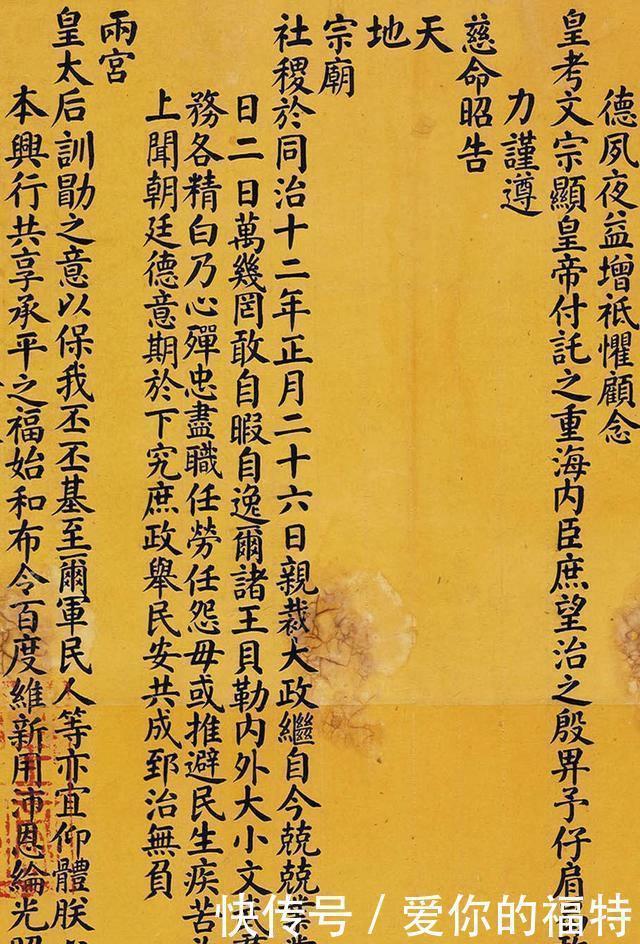 德夙夜益增祗懼顧念
皇考文宗顯皇帝付託之重海内臣庶望治之殷畀予仔肩
力謹遵
慈命昭告
天
地
宗廟
社稷於同治十二年正月二十六日親裁大政繼自今兢兢
日二日萬幾罔敢自暇自逸爾諸王貝勒内外大小文
務各精白乃心殫忠盡職任勞任怨毋或推避民生疾苦
上聞朝廷德意期於下究庶政舉民安共成郅治無負
兩宮
皇太后訓勖之意以保我丕丕基至爾軍民人等亦宜仰體朕
本興行共享承平之福始和布令百度維新用沛恩綸光
快传号 / 爱你的福特